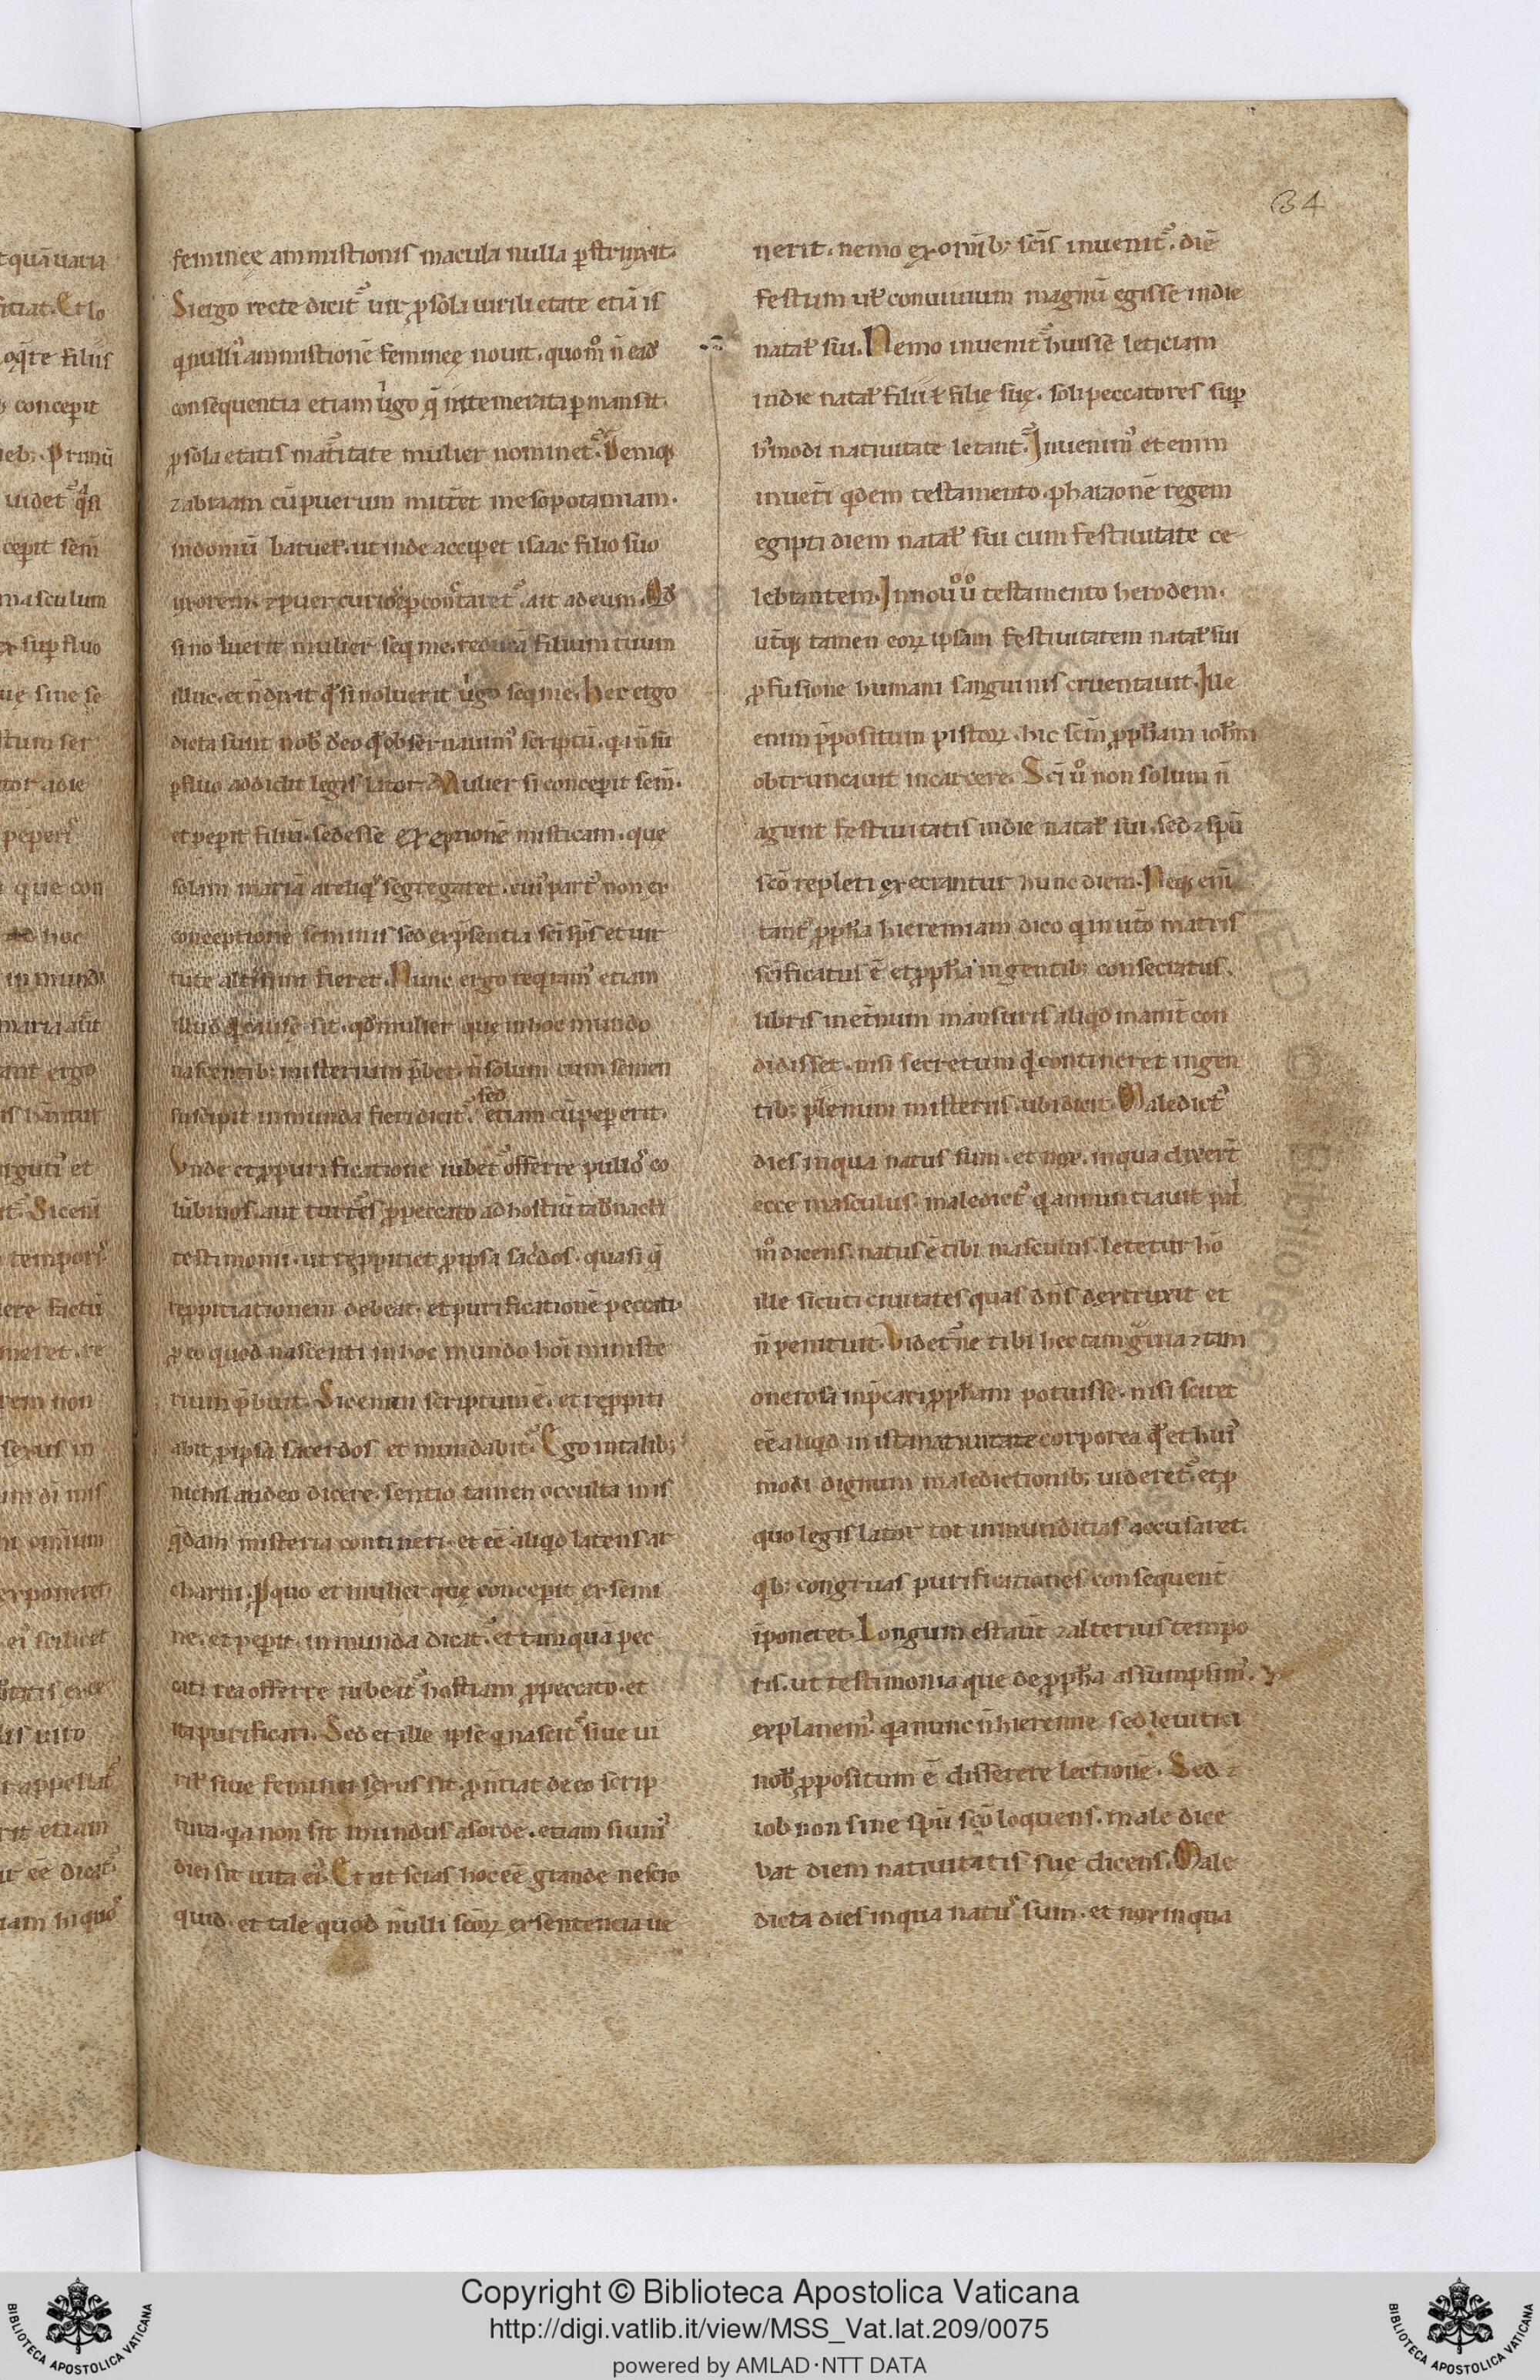 34
feminee ammistionis macula nulla p̄strinxit.
Si ergo recte dicit᷒ uir ꝓ sola uirili etate etiā is
q̇ nulli᷒ ammistionē feminę nouit. quom̊ n̄ eadē
consequentia etiam ůgo q̄ intemerata ꝑmansit.
ꝓ sola etatis mat̄itate mulier nominet᷒. Deniqꝫ
⁊ abraam cū puerum mitt̄et mesopotamiam.
in domū batuel. ut inde accip̄et isaac filio suo
si noluerit mulier seq̇ me. reducā filium tuum
illuc. et n̄ dixit q̇ si noluerit ůgo seq̇ me. Hec ergo
ꝑfluo addidit legislator Mulier si conceperit sem̄.
et pep̄it filiū. sed esse exceptionē misticam. que
solam mariā a reliq̇s segregaret. cui᷒ part᷒ non ex
conceptione seminis sed ex p̄sentia sc̄i sp̄s et uir
tute altissimi fieret. Nunc ergo req̇ram᷒ etiam
illud q̇d cause sit. qd mulier que in hoc mundo
nascentibꝫ misterium p̄bet. n̄ solum cum semen
suscipit inmunda fieri dicit᷒. sed etiam cū pep̄erit.
Unde et ꝓ purificatione iubet᷒ offerre pullos co
lūbinos. aut turt᷒es ꝓ peccato ad hostiū tab̄nacli
testimonii. ut reppitiet ꝓ ipsa sac̄dos. quasi q̄
reppitiationem debeat. et purificationē peccati.
ꝓ eo quod nascenti in hoc mundo hoi ministe
rium p̄buit. Sic enim scriptum ē. et reppiti
abit ꝓ ipsa sacerdos et mundabit᷒. Ego in talibꝫ
nichil audeo dicere. sentio tamen occulta in is
q̄dam misteria contineri. et eē aliqd latens ar
chani. ꝓ quo et mulier que concepit ex semi
ne. et pep̄it. inmunda dicat᷒. et tamquā pec
cati rea offerre iubeat᷒ hostiam ꝓ peccato. et
ita purificari. Sed et ille ipse q̇ nascit᷒ siue ui
ril siue feminei sexus sit. ꝓn̄tiat de eo scrip
tura. q̇a non sit mundus a sorde. etiam si uni᷒
diei sit uita ei᷒. Et ut scias hoc eē grande nescio
quid. et tale quod nulli scoꝝ ex sentencia ue
nerit. nemo ex omībꝫ scīs inuenit᷒. diē
festum ul conuiuium magnū egisse in die
natal sui. Nemo inuenit᷒ huisse leticiam
in die natal filii ul filie sue. soli peccatores sup̄
h᷒modi natiuitate letant᷒. Inuenim᷒ etenim
in uet̄i q̇dem testamento. pharaonē regem
egipti diem natal sui cum festiuitate ce-
lebrantem. In nouo ů testamento herodem.
ut̄qꝫ tamen eoꝝ ipsam festiuitatem natal sui
ꝓfusione humani sanguinis cruentauit. Ille
enim p̄positum pistoꝝ. hic scm̄ ꝓpham ioh̄m
obtruncauit in carcere. Sci ů non solum n̄
agunt festiuitatis in die natal sui. sed ⁊ spū
scō repleti execrantur hunc diem. Neqꝫ enī
tant᷒ ꝓpha hieremiam dico q̇ in ut̄o matris
scificatus ē et ꝓpha in gentibꝫ consecratus.
libris in et̄num mansuris aliqd inanit̄ con
didisset. nisi secretum q̇d contineret ingen
tibꝫ plenum misteriis. ubi dicit. Maledict᷒
dies in qua natus sum. et nox in qua dixert̄
ecce masculus. maledict᷒ q̇ annuntiauit pat̄
m̊ dicens. natus ē tibi masculus. letetur hō
ille sicuti ciuitates quas dn̄s dextruxit et
n̄ penituit. Videt᷒ ne tibi hec tam gͣuia ⁊ tam
onerosa inp̄cari ꝓpham potuisse. nisi sciret
eē aliqd in ista natiuitate corporea q̇d et hui᷒
modi dignum maledictionibꝫ uideret᷒. et ꝓ
quo legislator tot inmunditias accusaret.
q̇bꝫ congruas purificationes consequent̄
īponeret. Longum est aut̄ ⁊ alterius tempo
ris. ut testimonia que de ꝓpha assumpsim᷒.
explanem᷒. q̇a nunc n̄ hieremie sed leuitici
nob ꝓpositum ē disserere lectionē. Sed ⁊
iob non sine spū scō loquens. male dice
bat diem natiuitatis sue dicens. Male
dicta dies in qua natu᷒ sum. et nox in qua
Copyright © Biblioteca Apostolica Vaticana
http://digi.vatlib.it/view/MSS_Vat.lat.209/0075
powered by AMLAD·NTT DATA
BIBLIOTECA APOSTOLICA VATICANA
BIBLIOTECA APOSTOLICA VATICANA